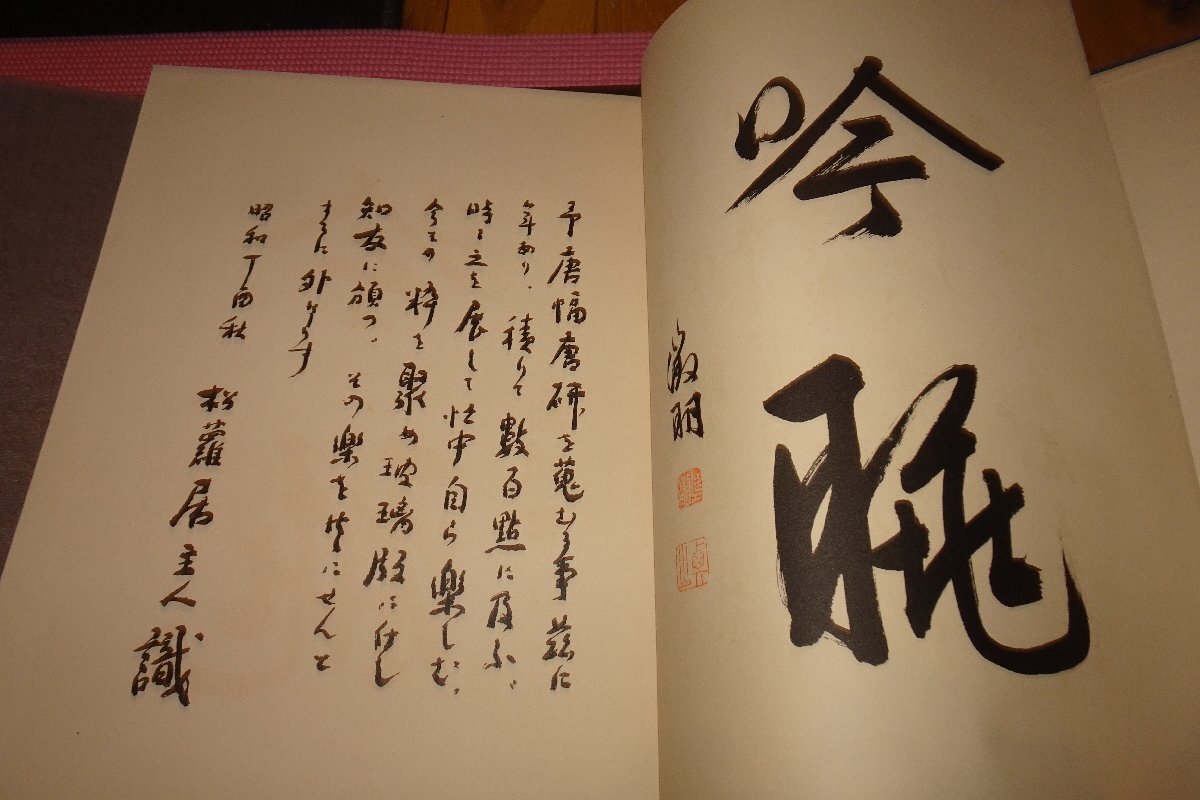 吟眺
徵明
予唐幅唐研を蒐むる事茲に
年あり、積りて數百點に及ふ、
時々之を展して忙中自ら楽しむ、
今その粋を聚め玻璃版に付し
知友に頒つ、その楽を共にせんと
するに外ならす
昭和丁酉秋
松蘿居主人識